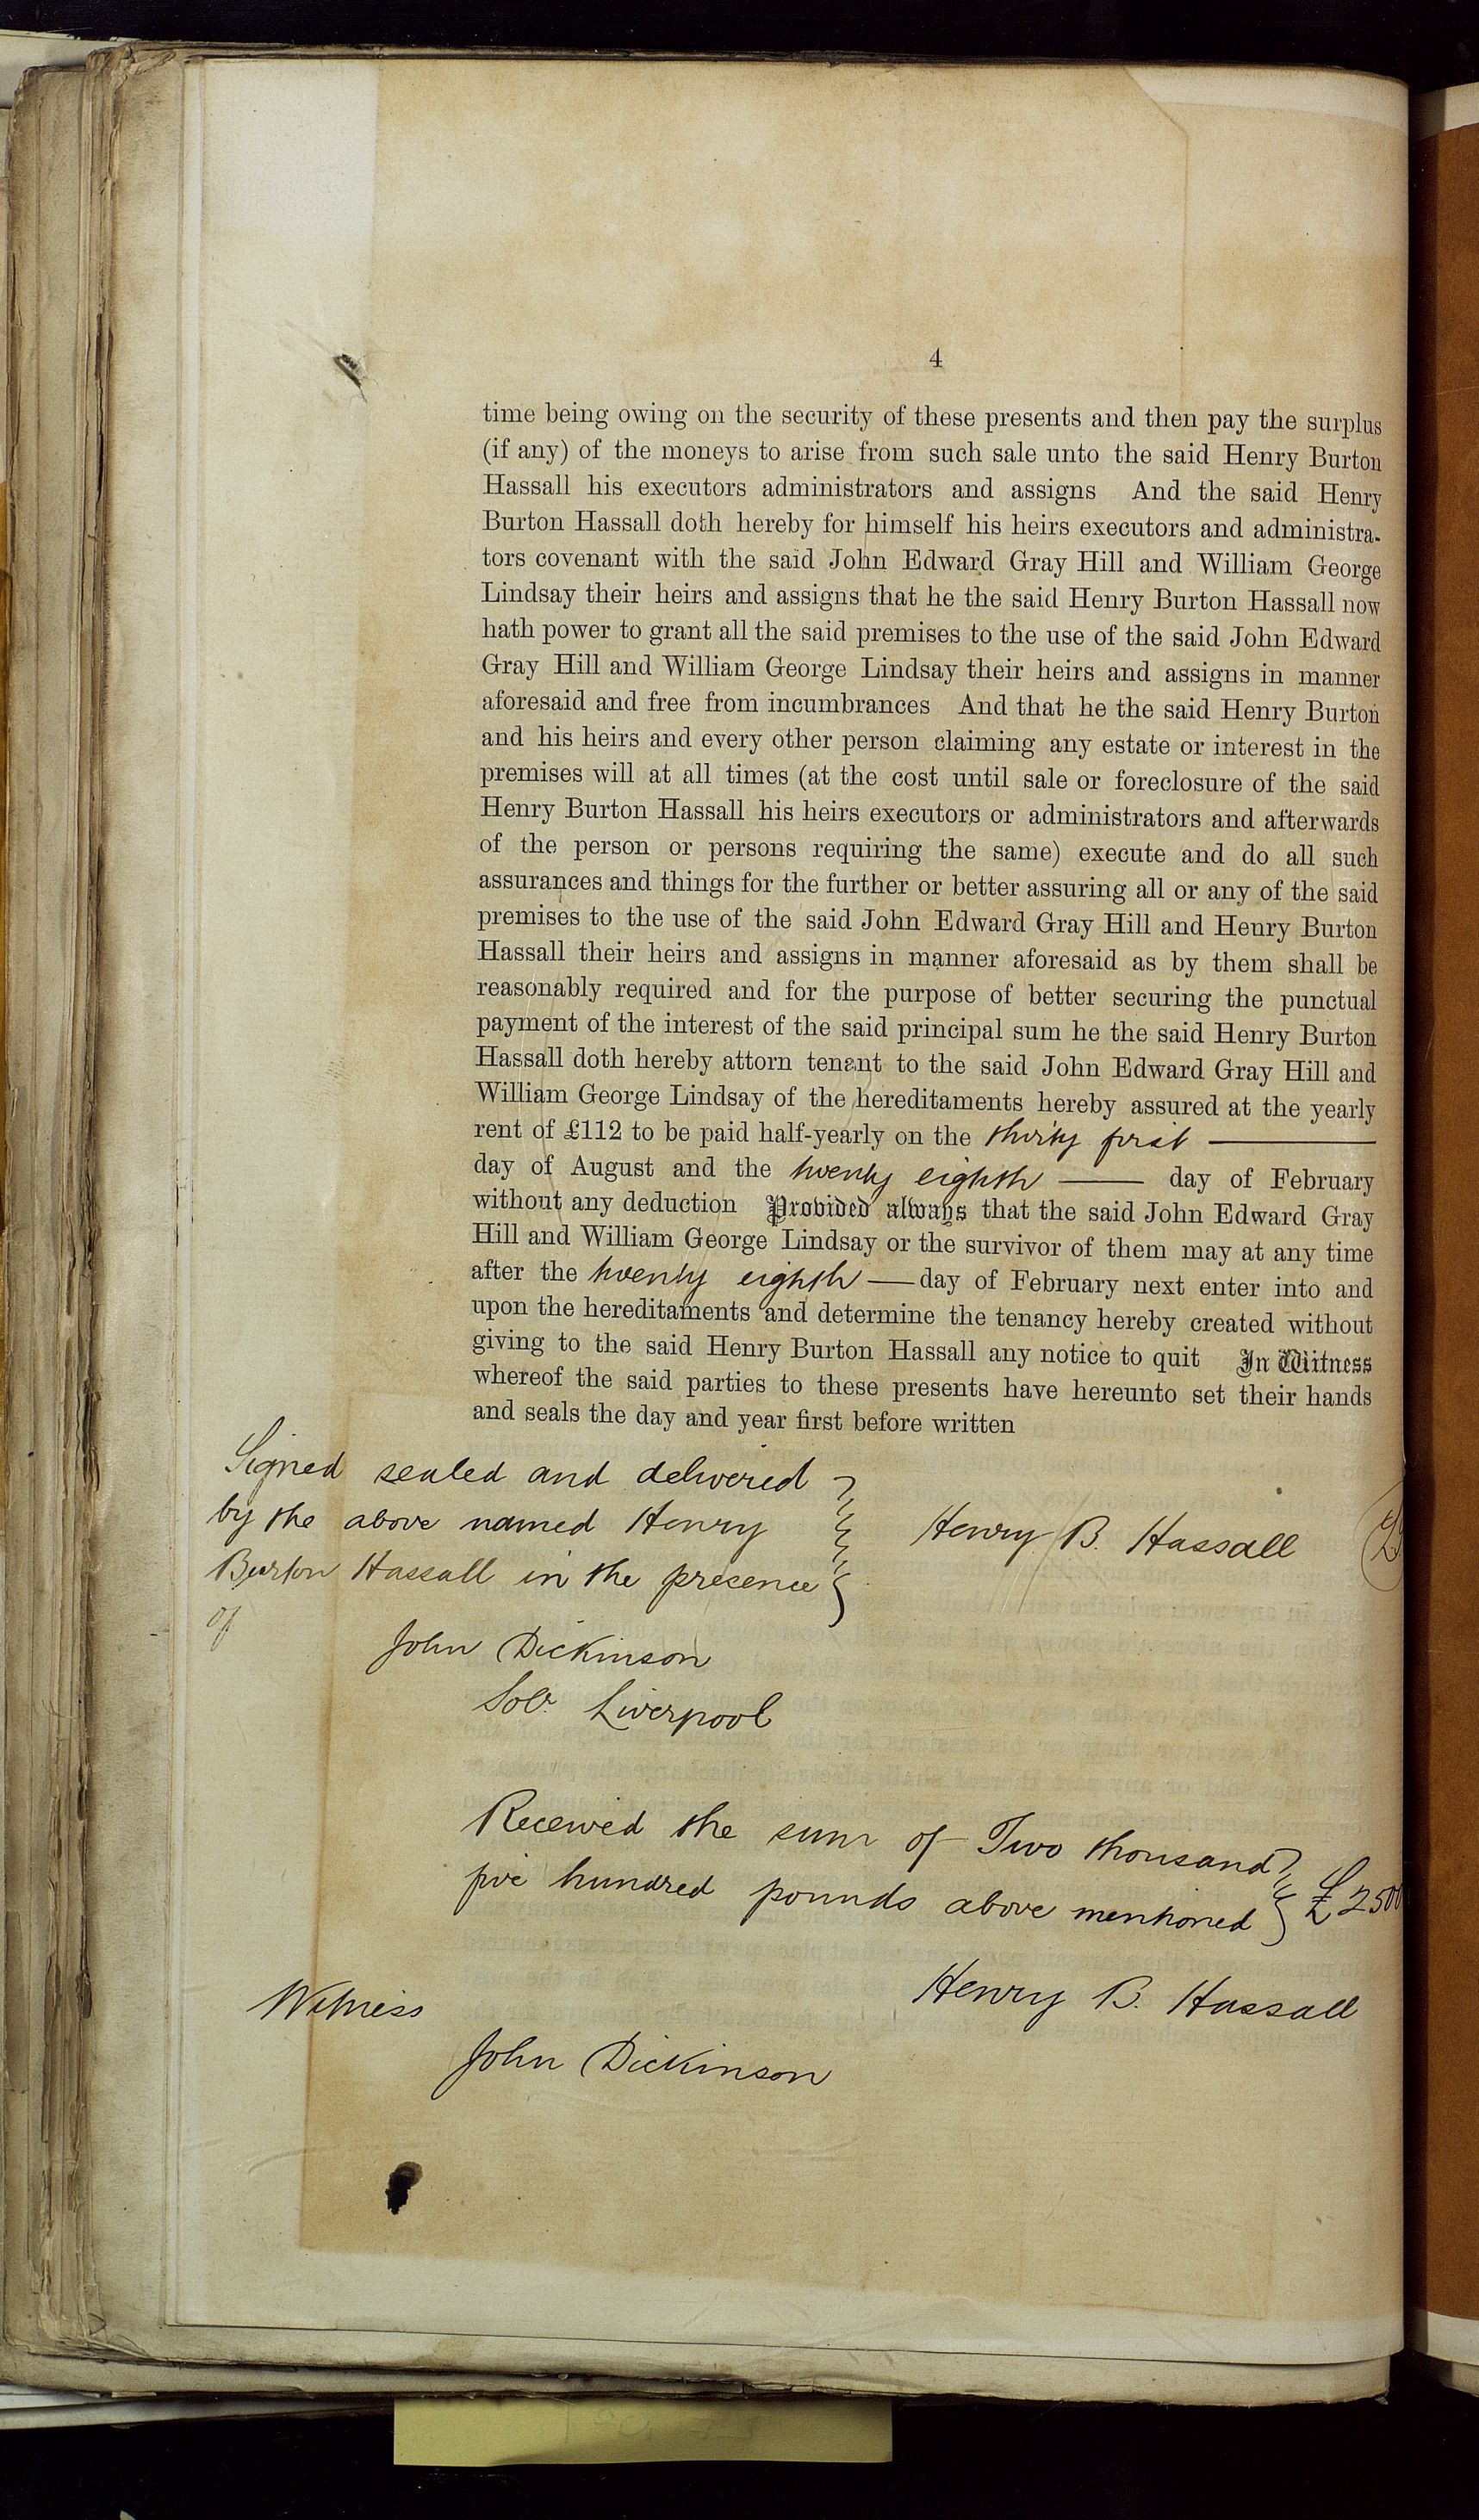 4
time being owing on the security of these presents and then pay the surplus
(if any) of the moneys to arise from such sale unto the said Henry Burton
Hassall his executors administrators and assigns And the said Henry
Burton Hassall doth hereby for himself his heirs executors and administra-
tors covenant with the said John Edward Gray Hill and William George
Lindsay their heirs and assigns that he the said Henry Burton Hassall now
hath power to grant all the said premises to the use of the said John Edward
Gray Hill and William George Lindsay their heirs and assigns in manner
aforesaid and free from incumbrances And that he the said Henry Burton
and his heirs and every other person claiming any estate or interest in the
premises will at all times (at the cost until sale or foreclosure of the said
Henry Burton Hassall his heirs executors or administrators and afterwards
of the person or persons requiring the same) execute and do all such
assurances and things for the further or better assuring all or any of the said
premises to the use of the said John Edward Gray Hill and Henry Burton
Hassall their heirs and assigns in manner aforesaid as by them shall be
reasonably required and for the purpose of better securing the punctual
payment of the interest of the said principal sum he the said Henry Burton
Hassall doth hereby attorn tenant to the said John Edward Gray Hill and
William George Lindsay of the hereditaments hereby assured at the yearly
rent of £112 to be paid half-yearly on the thirty first
day of August and the twenty eighth — day of February
without any deduction Provided always that the said John Edward Gray
Hill and William George Lindsay or the survivor of them may at any time
after the twenty eighth — day of February next enter into and
upon the hereditaments and determine the tenancy hereby created without
giving to the said Henry Burton Hassall any notice to quit In Witness
whereof the said parties to these presents have hereunto set their hands
and seals the day and year first before written
Signed sealed and delivered
by the above named Henry
Burton Hassall in the presence
of
Henry B. Hassall
John Dickinson
Solr. Liverpool
Received the sum of Two thousand
five hundred pounds above mentioned £2500
Henry B. Hassall
Witness
John Dickinson